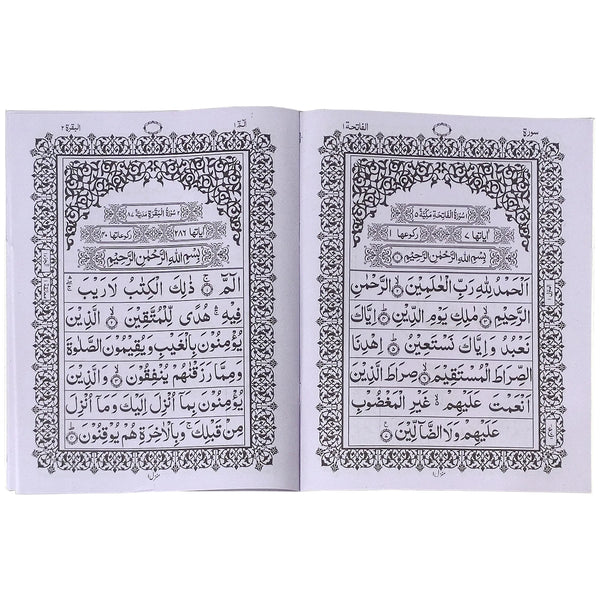 سورة
الفاتحة ١
سُوْرَةُ الْفَاتِحَةِ مَكِّيَّةٌ ٥
اٰيَاتُهَا ٧
رُكُوْعُهَا ١
بِسْمِ اللّٰهِ الرَّحْمٰنِ الرَّحِيْمِ
اَلْحَمْدُ لِلّٰهِ رَبِّ الْعٰلَمِيْنَ ۝ الرَّحْمٰنِ
الرَّحِيْمِ ۝ مٰلِكِ يَوْمِ الدِّيْنِ ۝ اِيَّاكَ
نَعْبُدُ وَاِيَّاكَ نَسْتَعِيْنُ ۝ اِهْدِنَا
الصِّرَاطَ الْمُسْتَقِيْمَ ۝ صِرَاطَ الَّذِيْنَ
اَنْعَمْتَ عَلَيْهِمْ غَيْرِ الْمَغْضُوْبِ
عَلَيْهِمْ وَلَا الضَّآلِّيْنَ ۝
منزل ١
البقرة ٢
٢ سُوْرَةُ الْبَقَرَةِ مَدَنِيَّةٌ ٨٧
اٰيَاتُهَا ٢٨٦
رُكُوْعَاتُهَا ٤٠
بِسْمِ اللّٰهِ الرَّحْمٰنِ الرَّحِيْمِ
الٓمّٓ ۝ ذٰلِكَ الْكِتٰبُ لَا رَيْبَ
فِيْهِ هُدًى لِّلْمُتَّقِيْنَ ۝ الَّذِيْنَ
يُؤْمِنُوْنَ بِالْغَيْبِ وَيُقِيْمُوْنَ الصَّلٰوةَ
وَمِمَّا رَزَقْنٰهُمْ يُنْفِقُوْنَ ۝ وَالَّذِيْنَ
يُؤْمِنُوْنَ بِمَآ اُنْزِلَ اِلَيْكَ وَمَآ اُنْزِلَ
مِنْ قَبْلِكَ وَبِالْاٰخِرَةِ هُمْ يُوْقِنُوْنَ ۝
منزل ١